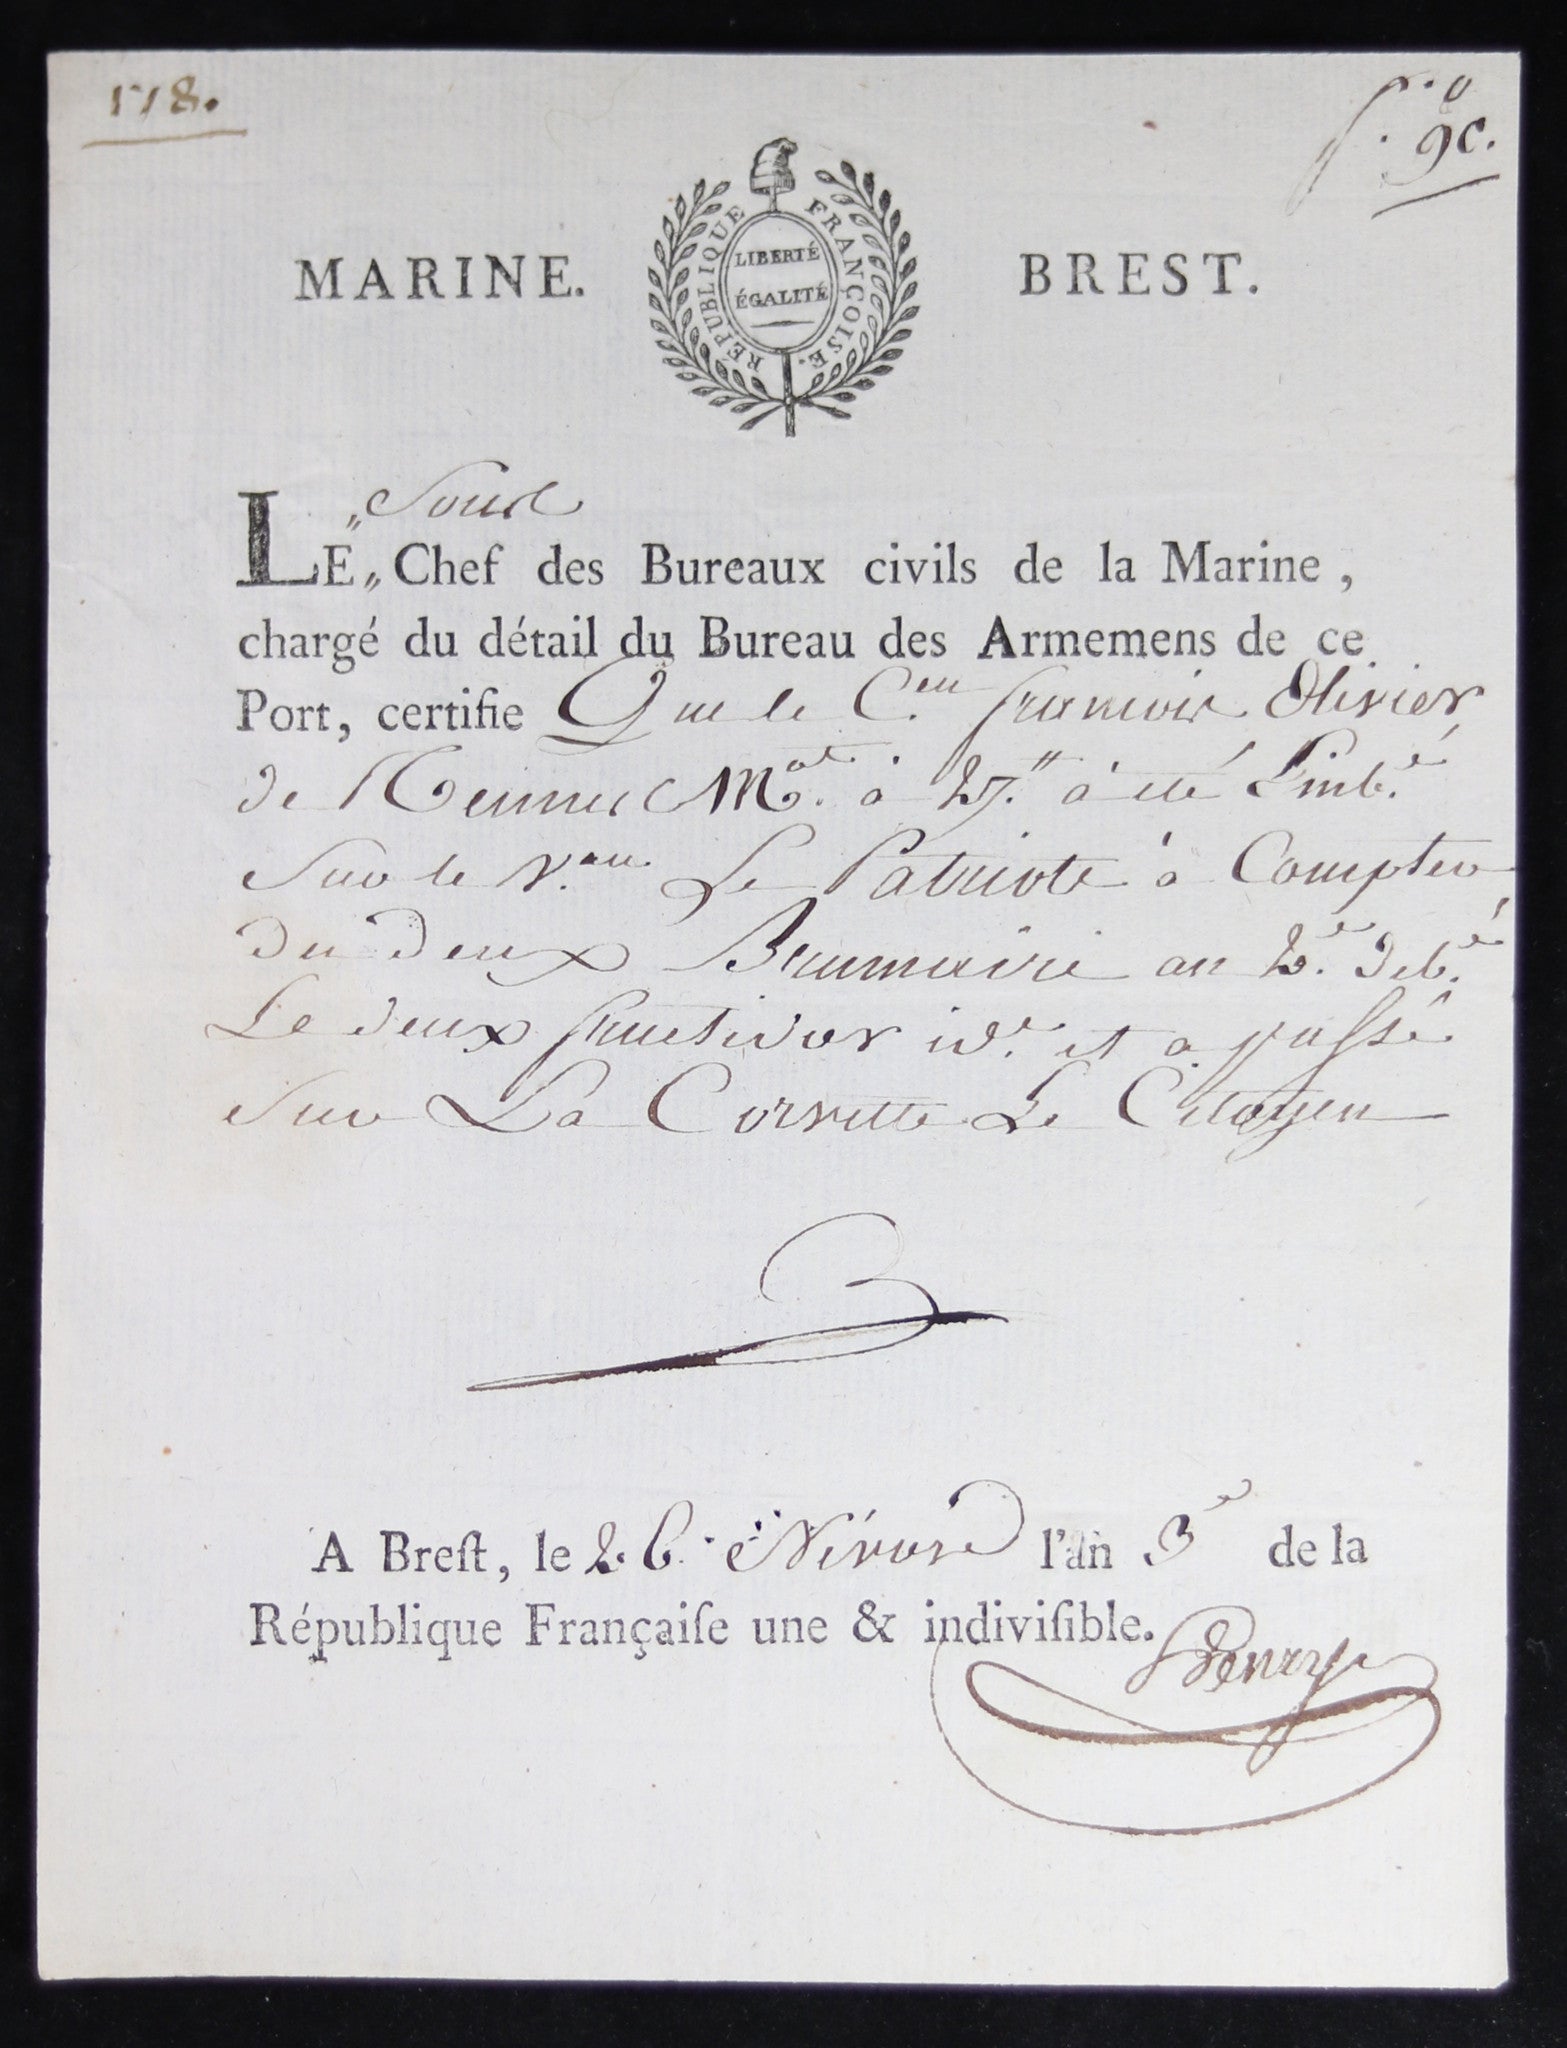 118.
fo. 9c.
MARINE.
RÉPUBLIQUE FRANÇOISE.
LIBERTÉ
ÉGALITÉ
BREST.
„ Sous
LE „ Chef des Bureaux civils de la Marine,
chargé du détail du Bureau des Armemens de ce
Port, certifie Que le C.en francois Olivier
de Rennes Mat. à 27.tt à été Emb.é
Sur le V.au Le Patriote à Compter
du deux Brumaire an 2.e deb.é
Le deux fructidor id.e et a passé
sur La Corvette Le Citoyen
A Breſt, le 26. Nivose l'an 3e de la
République Françaiſe une & indiviſible.